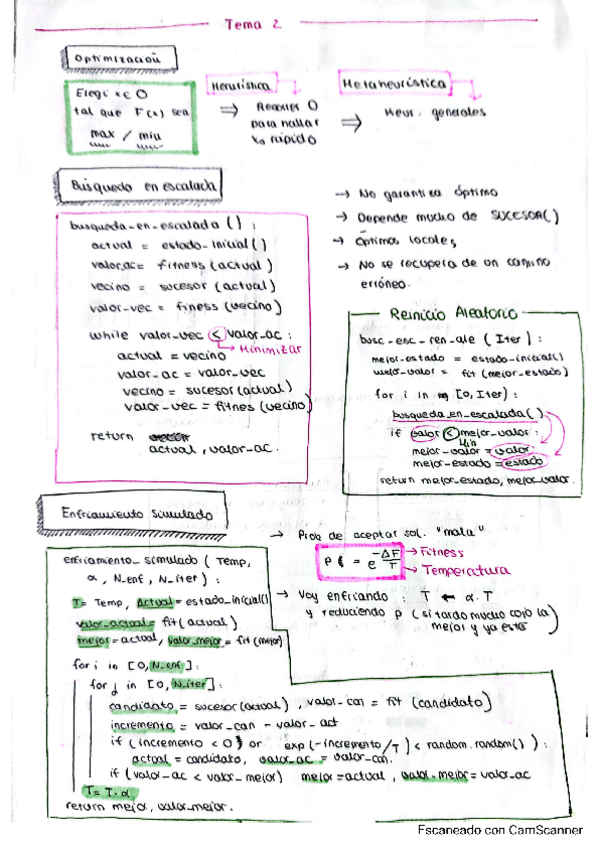 Tema 2
Optimización
Elegir x ∈ O
tal que F(x) sea
max / min
Heurística
⇒ Recorres O
para hallar
xo rápido
Metaheurística
⇒ Heur. generales
Búsqueda en escalada
busqueda-en-escalada ( ) :
actual = estado-inicial ( )
valor_ac = fitness (actual)
vecino = sucesor (actual)
valor-vec = finess (vecino)
while valor-vec < valor-ac :
→ Minimizar
actual = vecino
valor-ac = valor-vec
vecino = sucesor (actual)
valor-vec = fitnes (vecino)
return
actual, valor-ac.
→ No garantiza óptimo
→ Depende mucho de SUCESOR( )
→ Óptimos locales
→ No se recupera de un camino
erróneo.
Reinicio Aleatorio
busc-esc-ren-ale (Iter) :
mejor-estado = estado-inicial()
mejor-valor = fit (mejor-estado)
for i in [0, Iter) :
busqueda_en_escalada( )
if valor < mejor-valor :
Min
mejor-valor = valor
mejor-estado = estado
return mejor-estado, mejor-valor
Enfriamiento simulado
→ Prob de aceptar sol. "mala"
P = e^(-ΔF/T)
→ Fitness
→ Temperatura
→ Voy enfriando : T ← α.T
y reduciendo P (si tardo mucho cojo la
mejor y ya está)
enfriamiento_simulado (Temp,
α, N_enf, N_iter) :
T = Temp, Actual = estado_inicial()
valor_actual = fit (actual)
mejor = actual, valor_mejor = fit (mejor)
for i in [0, N_enf] :
for j in [0, N_iter] :
candidato = sucesor (actual), valor-can = fit (candidato)
incremento = valor-can - valor-act
if (incremento < 0) or exp (-incremento/T) < random.random( ) ) :
actual = candidato, valor-ac = valor-can.
if (valor-ac < valor-mejor) mejor = actual, valor-mejor = valor-ac
T = T·α
return mejor, valor-mejor.
Escaneado con CamScanner